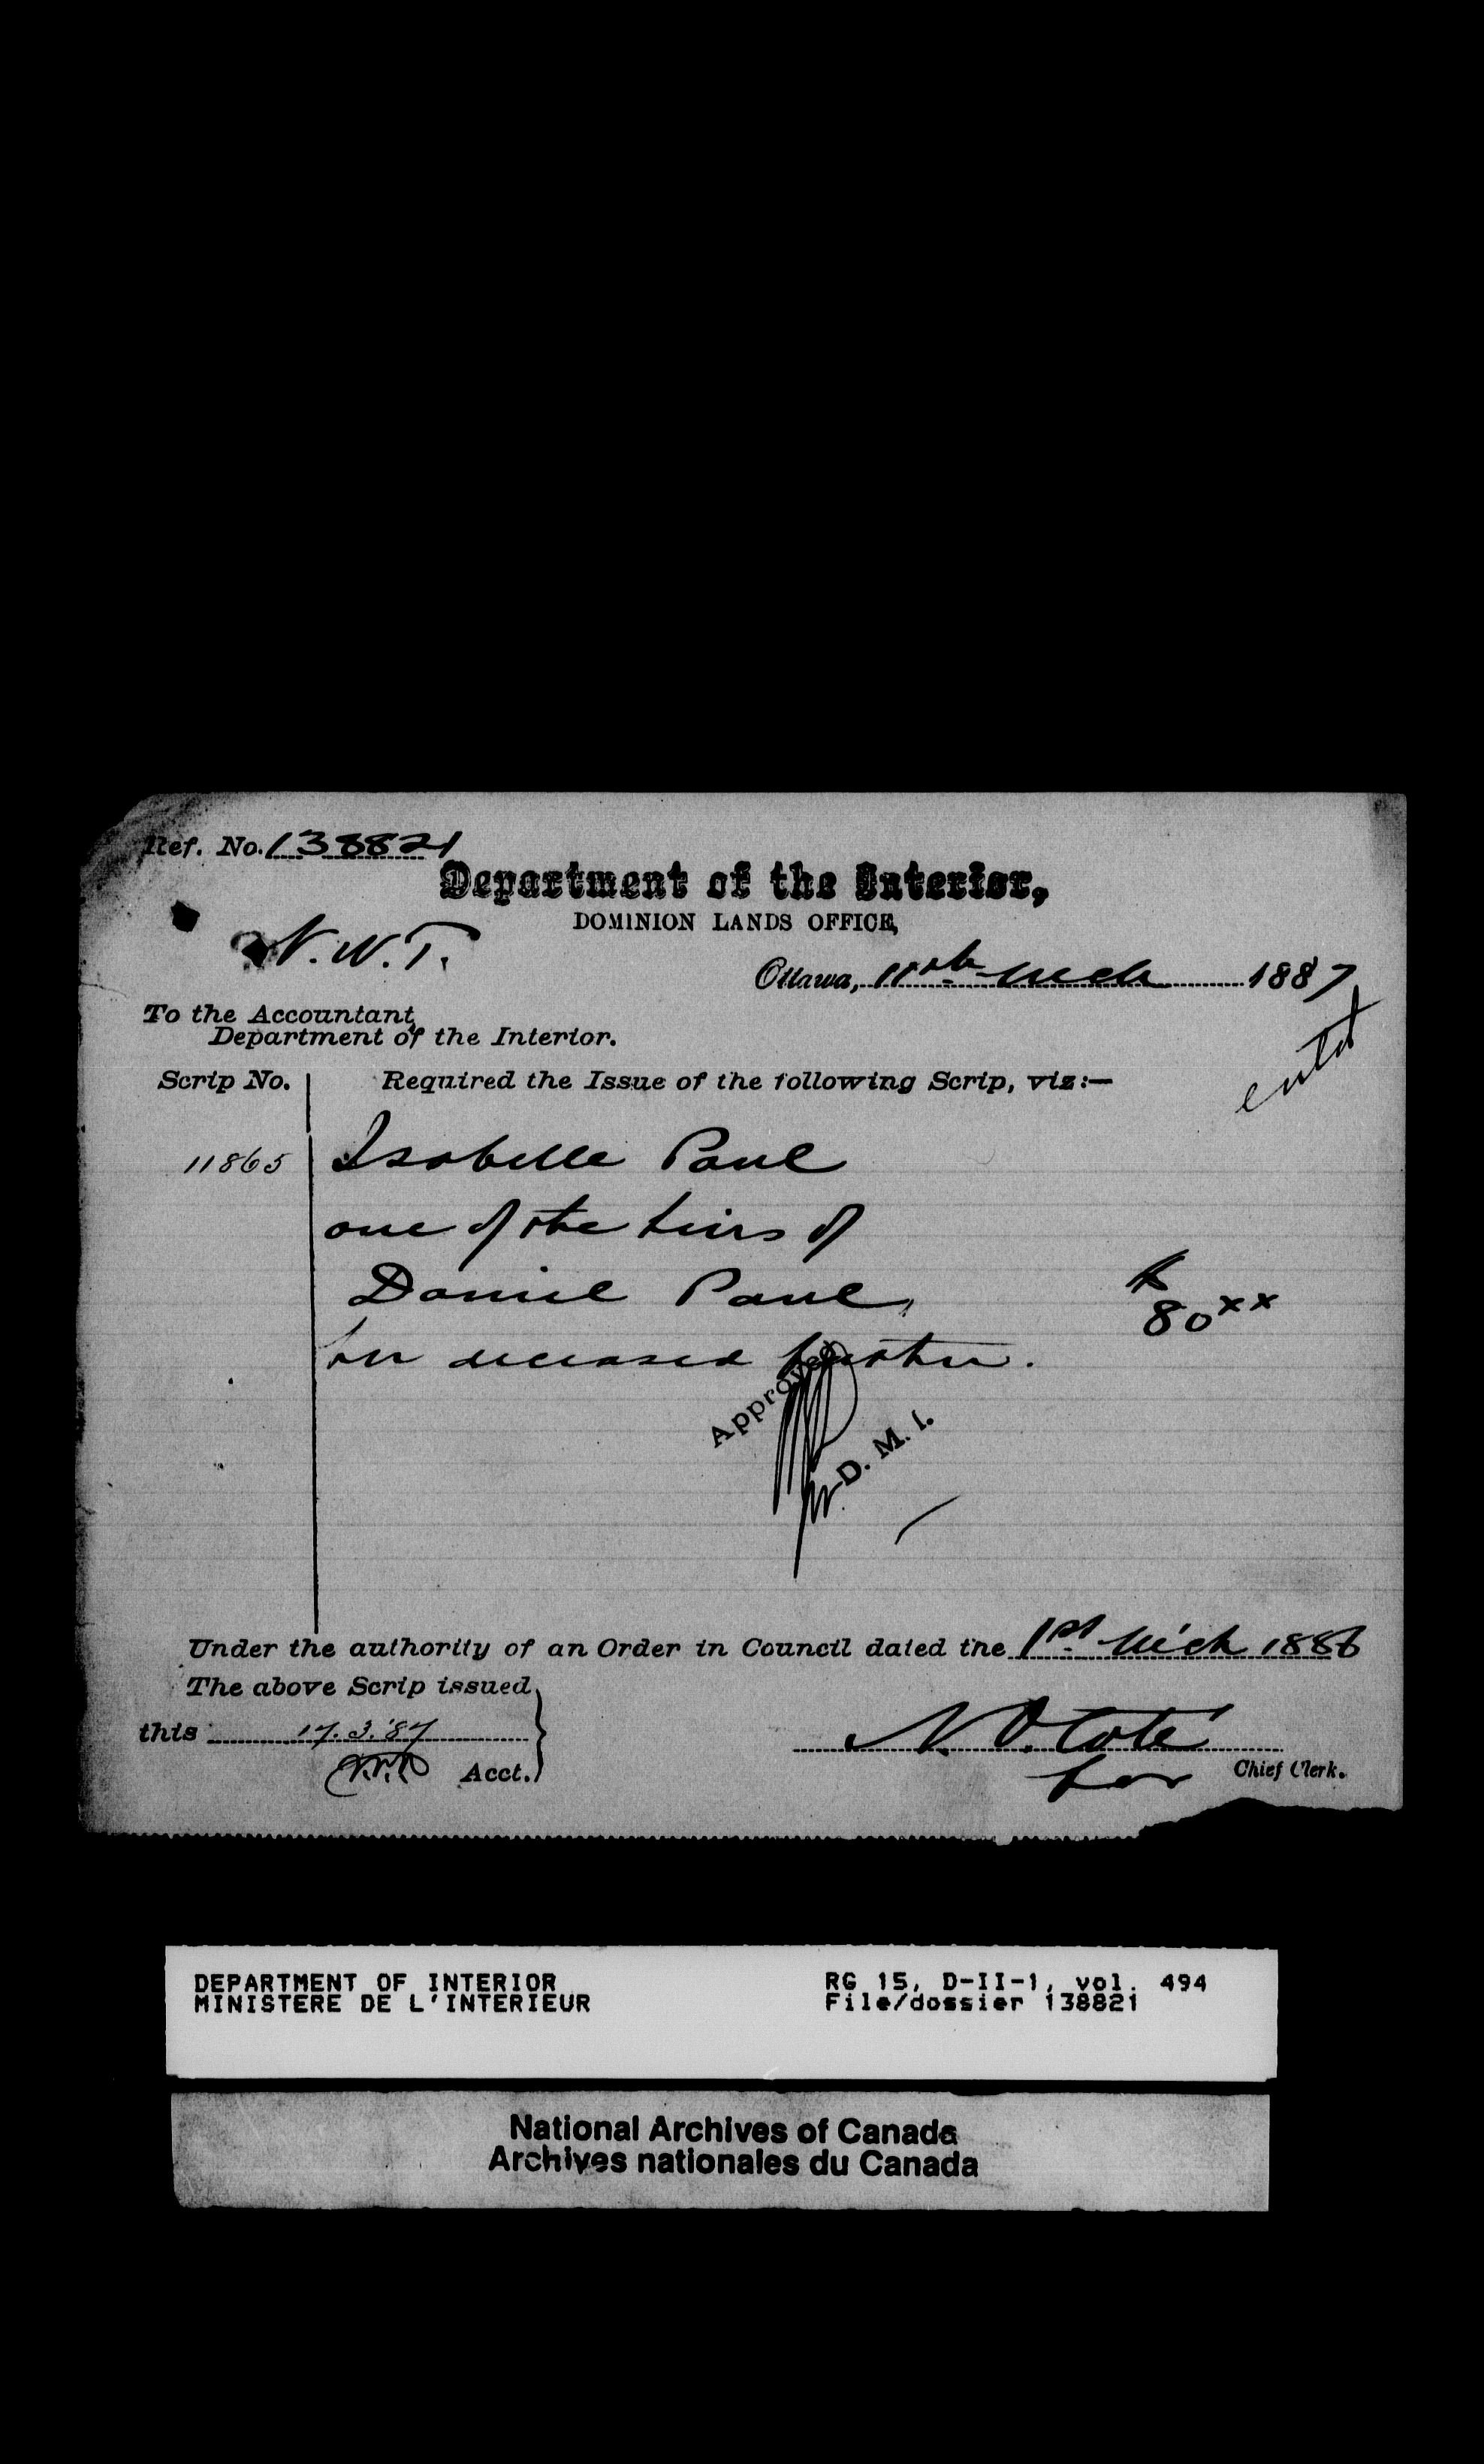 Ref. No. 138821
Department of the Interior,
DOMINION LANDS OFFICE,
N.W.T.
Ottawa, 11th Mch 1887
To the Accountant,
Department of the Interior.
entd
Scrip No. Required the Issue of the following Scrip, viz:—
11865 Isabelle Paul
one of the heirs of
Daniel Paul, $
80xx
her deceased
Approved
D. M. I.
Under the authority of an Order in Council dated the 1st Mch 1886
The above Scrip issued
this 17.3.'87
N. O. Coté
Acct. for Chief Clerk.
DEPARTMENT OF INTERIOR RG 15, D-II-1, vol. 494
MINISTERE DE L'INTERIEUR File/dossier 138821
National Archives of Canada
Archives nationales du Canada